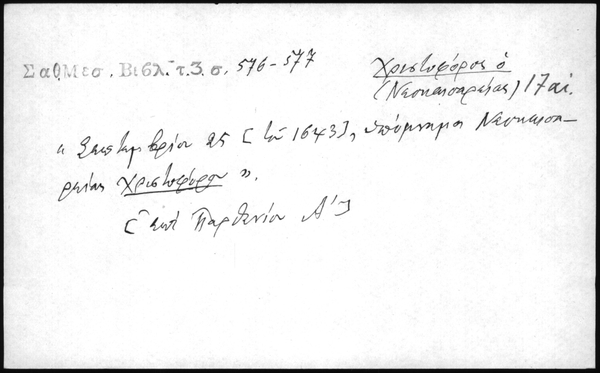 Σαθ Μεσ. Βιβλ. τ.3. σ. 576-577
Χριστοφόρος ὁ
(Νεοκαισαρείας) 17 αἰ.
« Σεπτεμβρίου 25 [τοῦ 1643], ὑπόμνημα Νεοκαισα-
ρείας Χριστοφόρου ».
[ἐπὶ Παρθενίου Α΄]